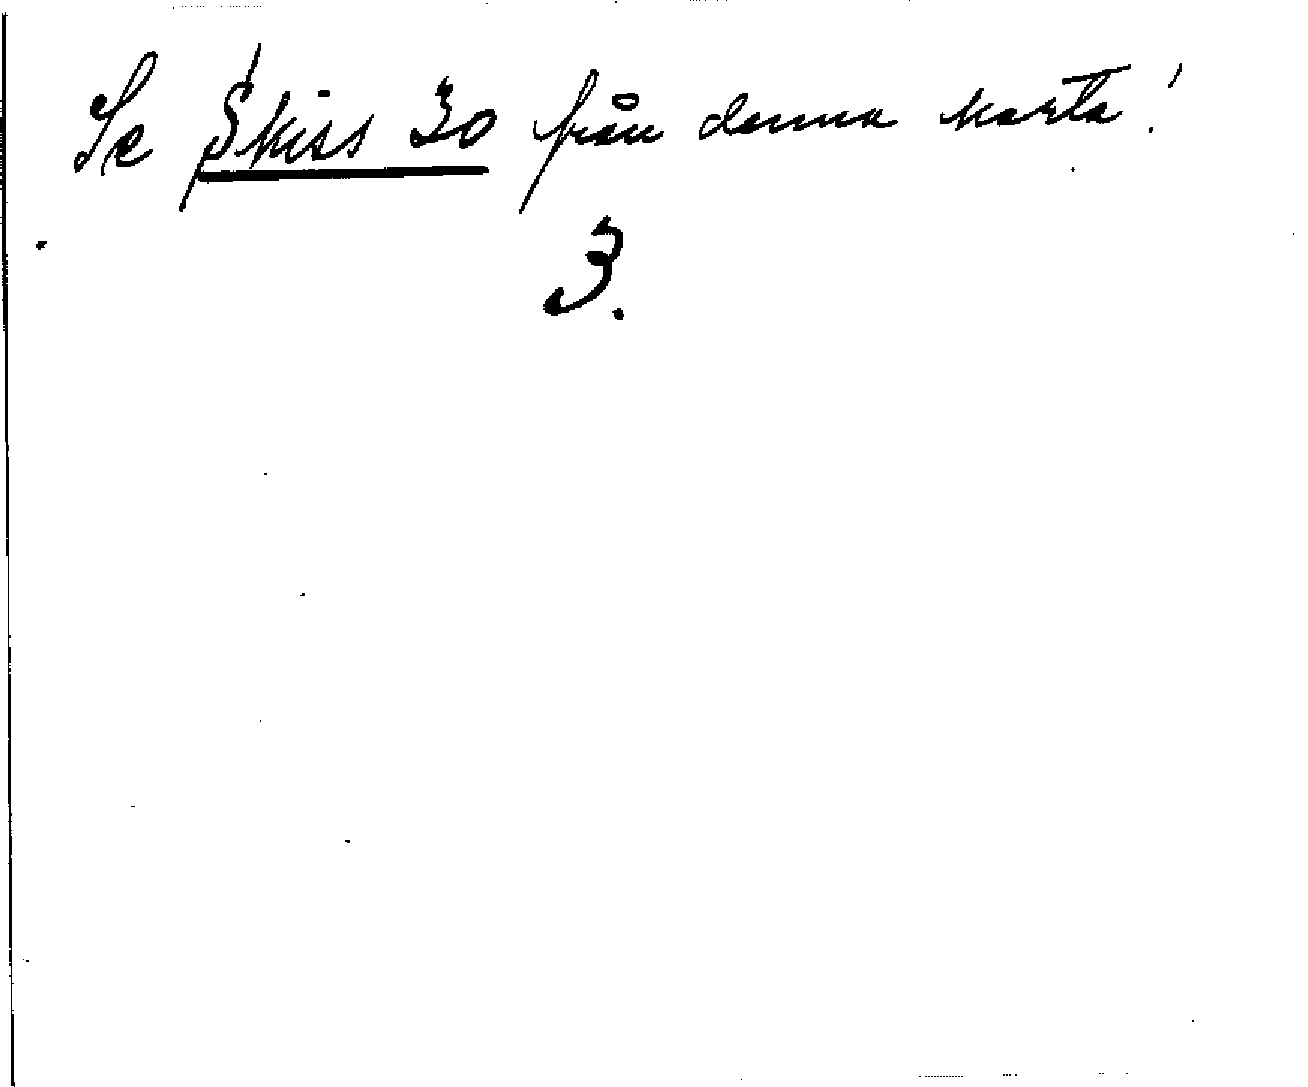 Se Skiss 30 från denna karta!
3.